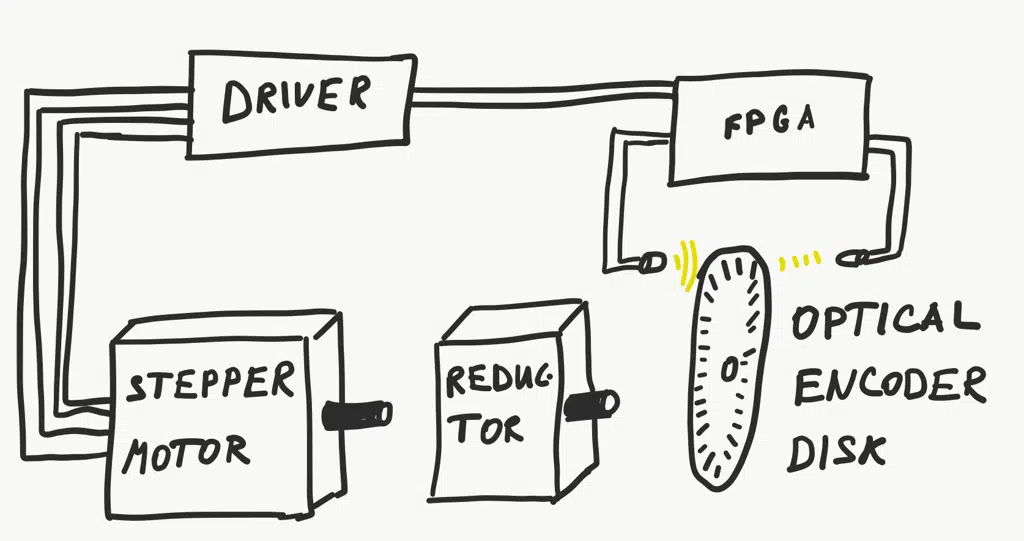 DRIVER
FPGA
STEPPER
MOTOR
REDUC-
TOR
OPTICAL
ENCODER
DISK